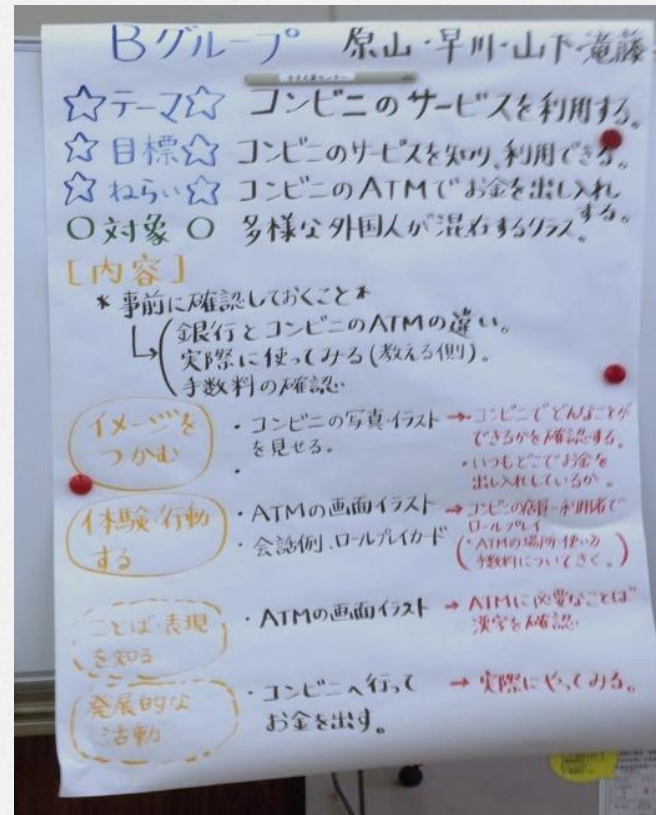 Bグループ 原山・早川・山下・滝藤
☆テーマ☆ コンビニのサービスを利用する。
☆目標☆ コンビニのサービスを知り、利用できる。
☆ねらい☆ コンビニのATMでお金を出し入れ
する。
○対象○ 多様な外国人が混在するクラス。
[内容]
*事前に確認しておくこと*
銀行とコンビニのATMの違い。
実際に使ってみる(教える側)。
手数料の確認
イメージを
つかむ
・コンビニの写真・イラスト
を見せる。
・
→コンビニでどんなことが
できるかを確認する。
・いつもどこでお金を
出し入れしているか。
体験・行動
する
・ATMの画面イラスト
・会話例、ロールプレイカード
→コンビニの店員・利用者で
ロールプレイ
(・ATMの場所・使い方
手数料についてきく。)
ことば・表現
を知る
・ATMの画面イラスト
→ATMに必要なことば
漢字を確認
発展的な
活動
・コンビニへ行って
お金を出す。
→実際にやってみる。